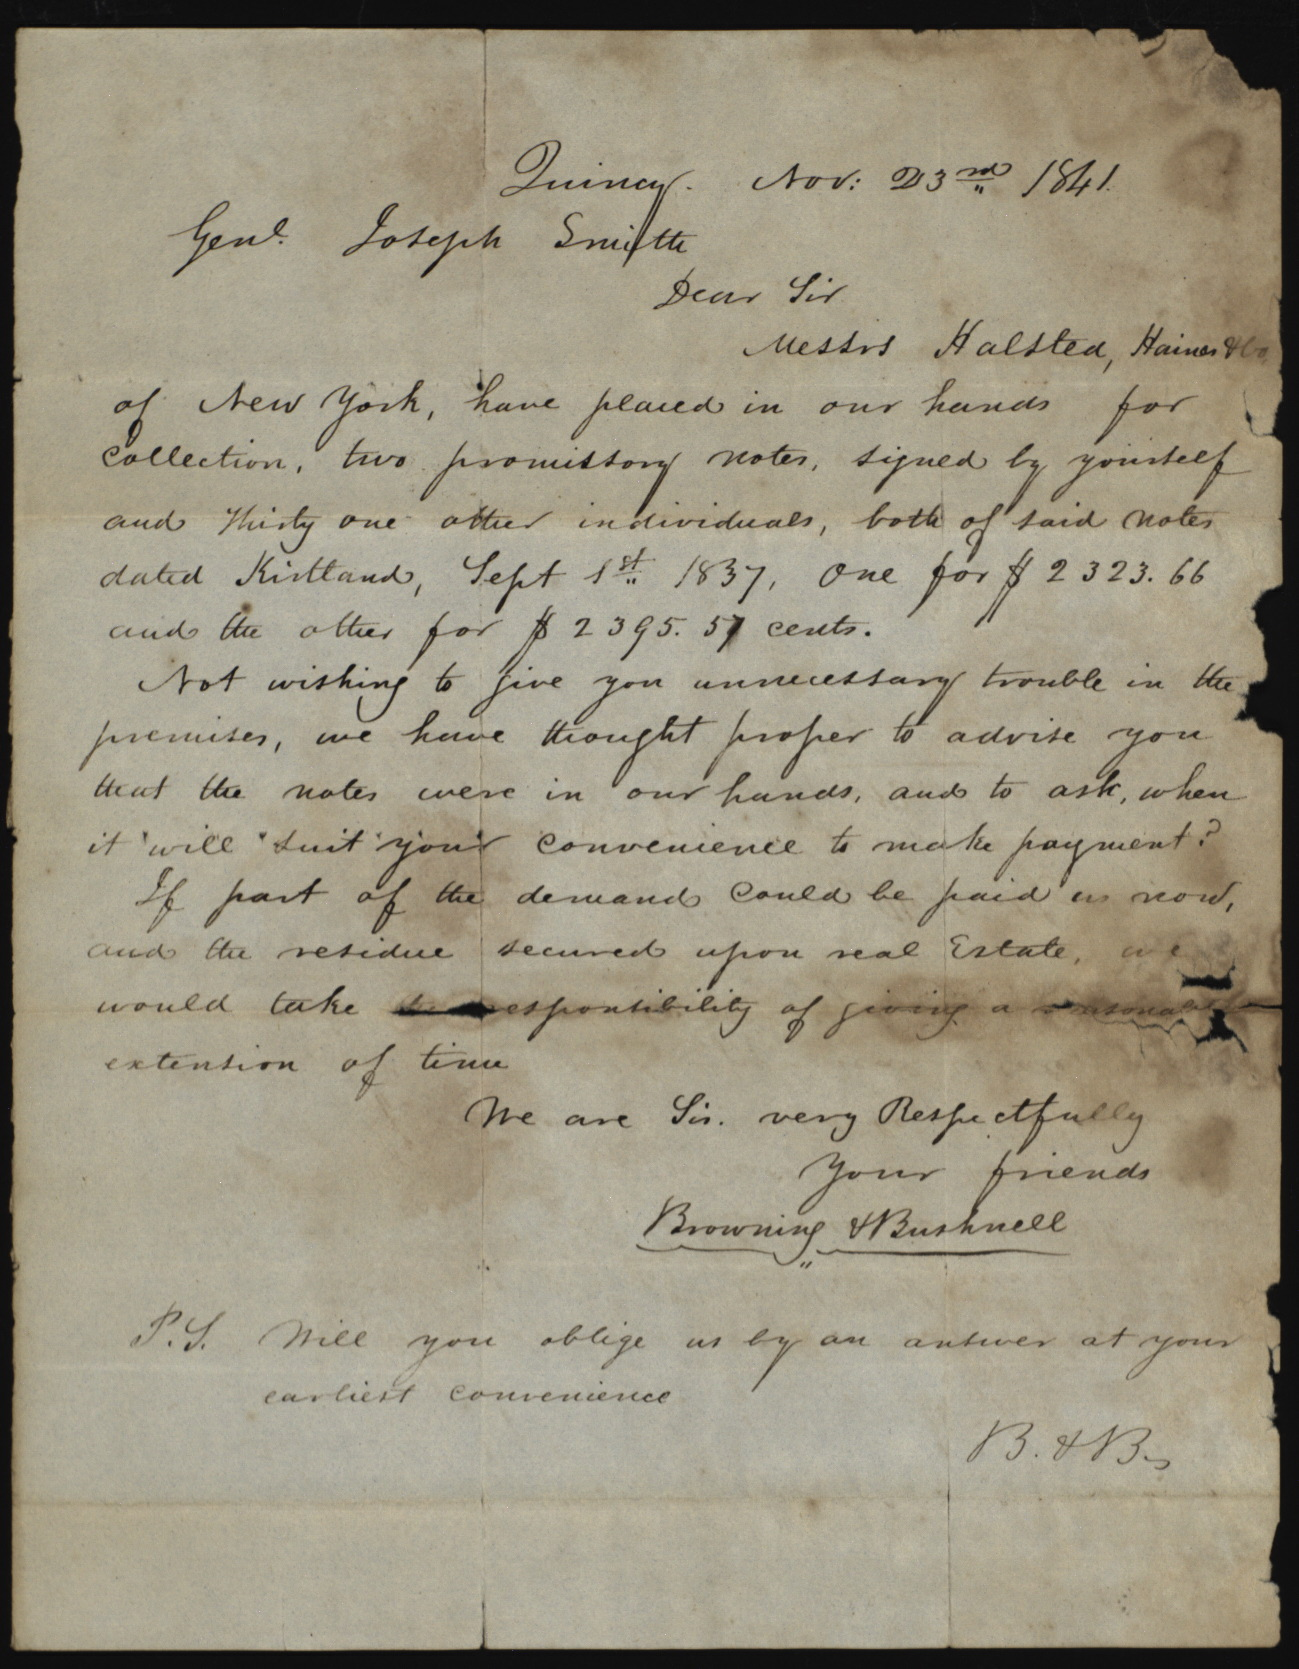 Quincy. Nov: 23rd 1841.
Genl. Joseph Smith
Dear Sir
Messrs Halsted, Haines & Co
of New York, have placed in our hands for
collection, two promissory notes, signed by yourself
and thirty one other individuals, both of said notes
dated Kirtland, Sept 1st 1837, One for $2323.66
and the other for $2395.57 cents.
Not wishing to give you unnecessary trouble in the
premises, we have thought proper to advise you
that the notes were in our hands, and to ask, when
it will suit your convenience to make payment?
If part of the demand could be paid us now,
and the residue secured upon real Estate, we
would take responsibility of giving a reasonable
extension of time
We are Sir. very Respectfully
Your friends
Browning & Bushnell
P.S. Will you oblige us by an answer at your
earliest convenience
B. & B.